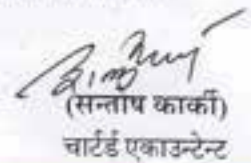 (सन्तोष कार्की)
चार्टर्ड एकाउन्टेन्ट